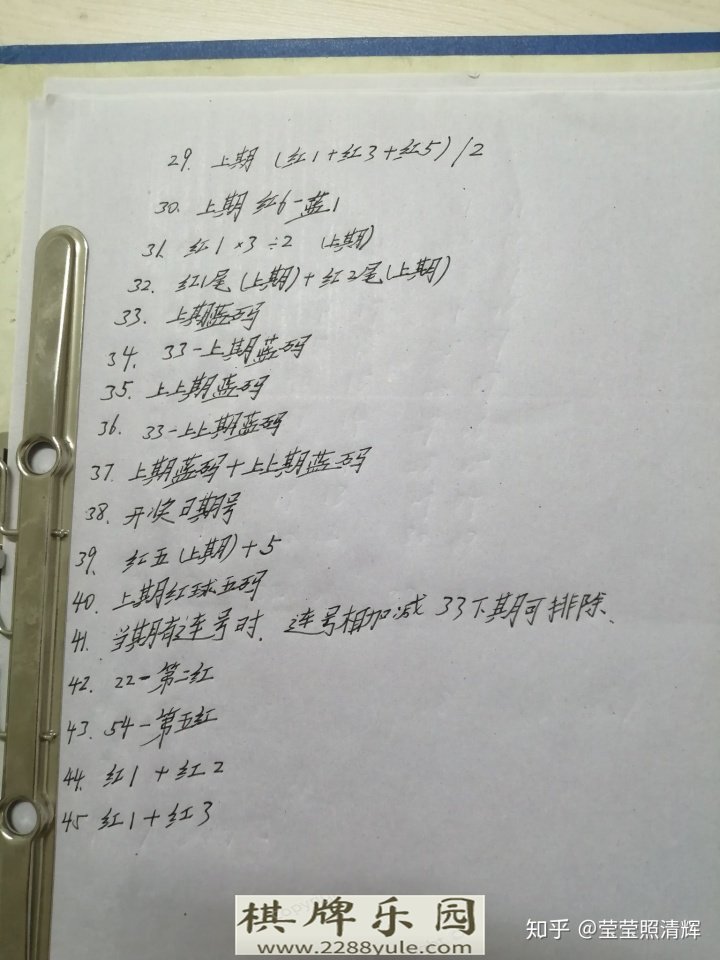 29. 上期 (红1+红3+红5)/2
30. 上期 红6-蓝1
31. 红1×3÷2 (上期)
32. 红1尾(上期)+红2尾(上期)
33. 上期蓝码
34. 33-上期蓝码
35. 上上期蓝码
36. 33-上上期蓝码
37. 上期蓝码+上上期蓝码
38. 开奖日期号
39. 红五(上期)+5
40. 上期红球五码
41. 当期有连号时. 连号相加减 33下期可排除.
42. 22-第二红
43. 54-第五红
44. 红1+红2
45 红1+红3
棋牌乐园
www.2288yule.com
知乎 @莹莹照清辉